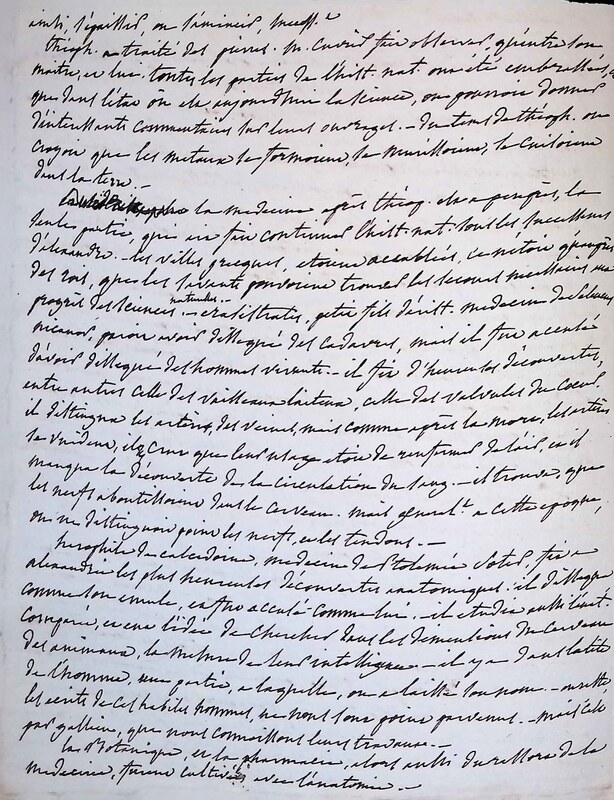 ainsi, l'épaissit, ou l'amincit, success.t
théoph. a traité des pierres. M. Cuvier fait observer, qu'entre son
maître, et lui toutes les parties de l'hist. nat. ont été embrassées, et
que dans l'état où est, aujourd'hui la science, on pourroit donner
d'intéressants commentaires sur leurs ouvrages. - du tems de théoph. on
croyoit que les metaux se formoient, se murissoient, se cuisoient
dans la terre. -
la medecine après théop. est a peu près, la
seule partie, qui ait fait continuer l'hist. nat. sous les successeurs
d'alexandre. - les villes grecques, étoient accablées, ce n'étoit qu'auprès
des rois, que les savants pouvoient trouver les secours necessaires aux
progrès des sciences naturelles. - erasistrate, petit fils d'arist. medecin de seleucus
nicanor, paroit avoir disséqué des cadavres, mais il fut accusé
d'avoir disséqué des hommes vivents - il fit d'heureuses découvertes,
entre autres celle des vaisseaux laiteux, celle des valvules du coeur.
il distingua les artères, des veines, mais comme après la mort, les artères
se vuident, il crut que leur usage etoit de renfermer de l'air, et il
manqua la découverte de la circulation du sang - il trouva, que
les nerfs aboutissoient dans le cerveau. mais general.t a cette epoque,
on ne distinguoit point les nerfs, et les tendons. -
herophile de calcedoine, medecin de Ptolemée Soter, fit a
alexandrie les plus heureuses découvertes anatomiques. il disséqua
comme son emule, et fut accusé comme lui. - il etudia aussi l'anat.
comparée, et eut l'idée de chercher dans les dimensions du cerveau
des animaux, la mesure de leur intelligence - il y a dans la tete
de l'homme, une partie, a laquelle, on a laissé son nom. - au reste
les ecrits de ces habiles hommes, ne nous sont point parvenus. - mais c'est
par gallien, que nous connaissons leurs travaux. -
la Botanique, et la pharmacie, alors aussi du ressort de la
medecine, furent cultivées avec l'anatomie. -